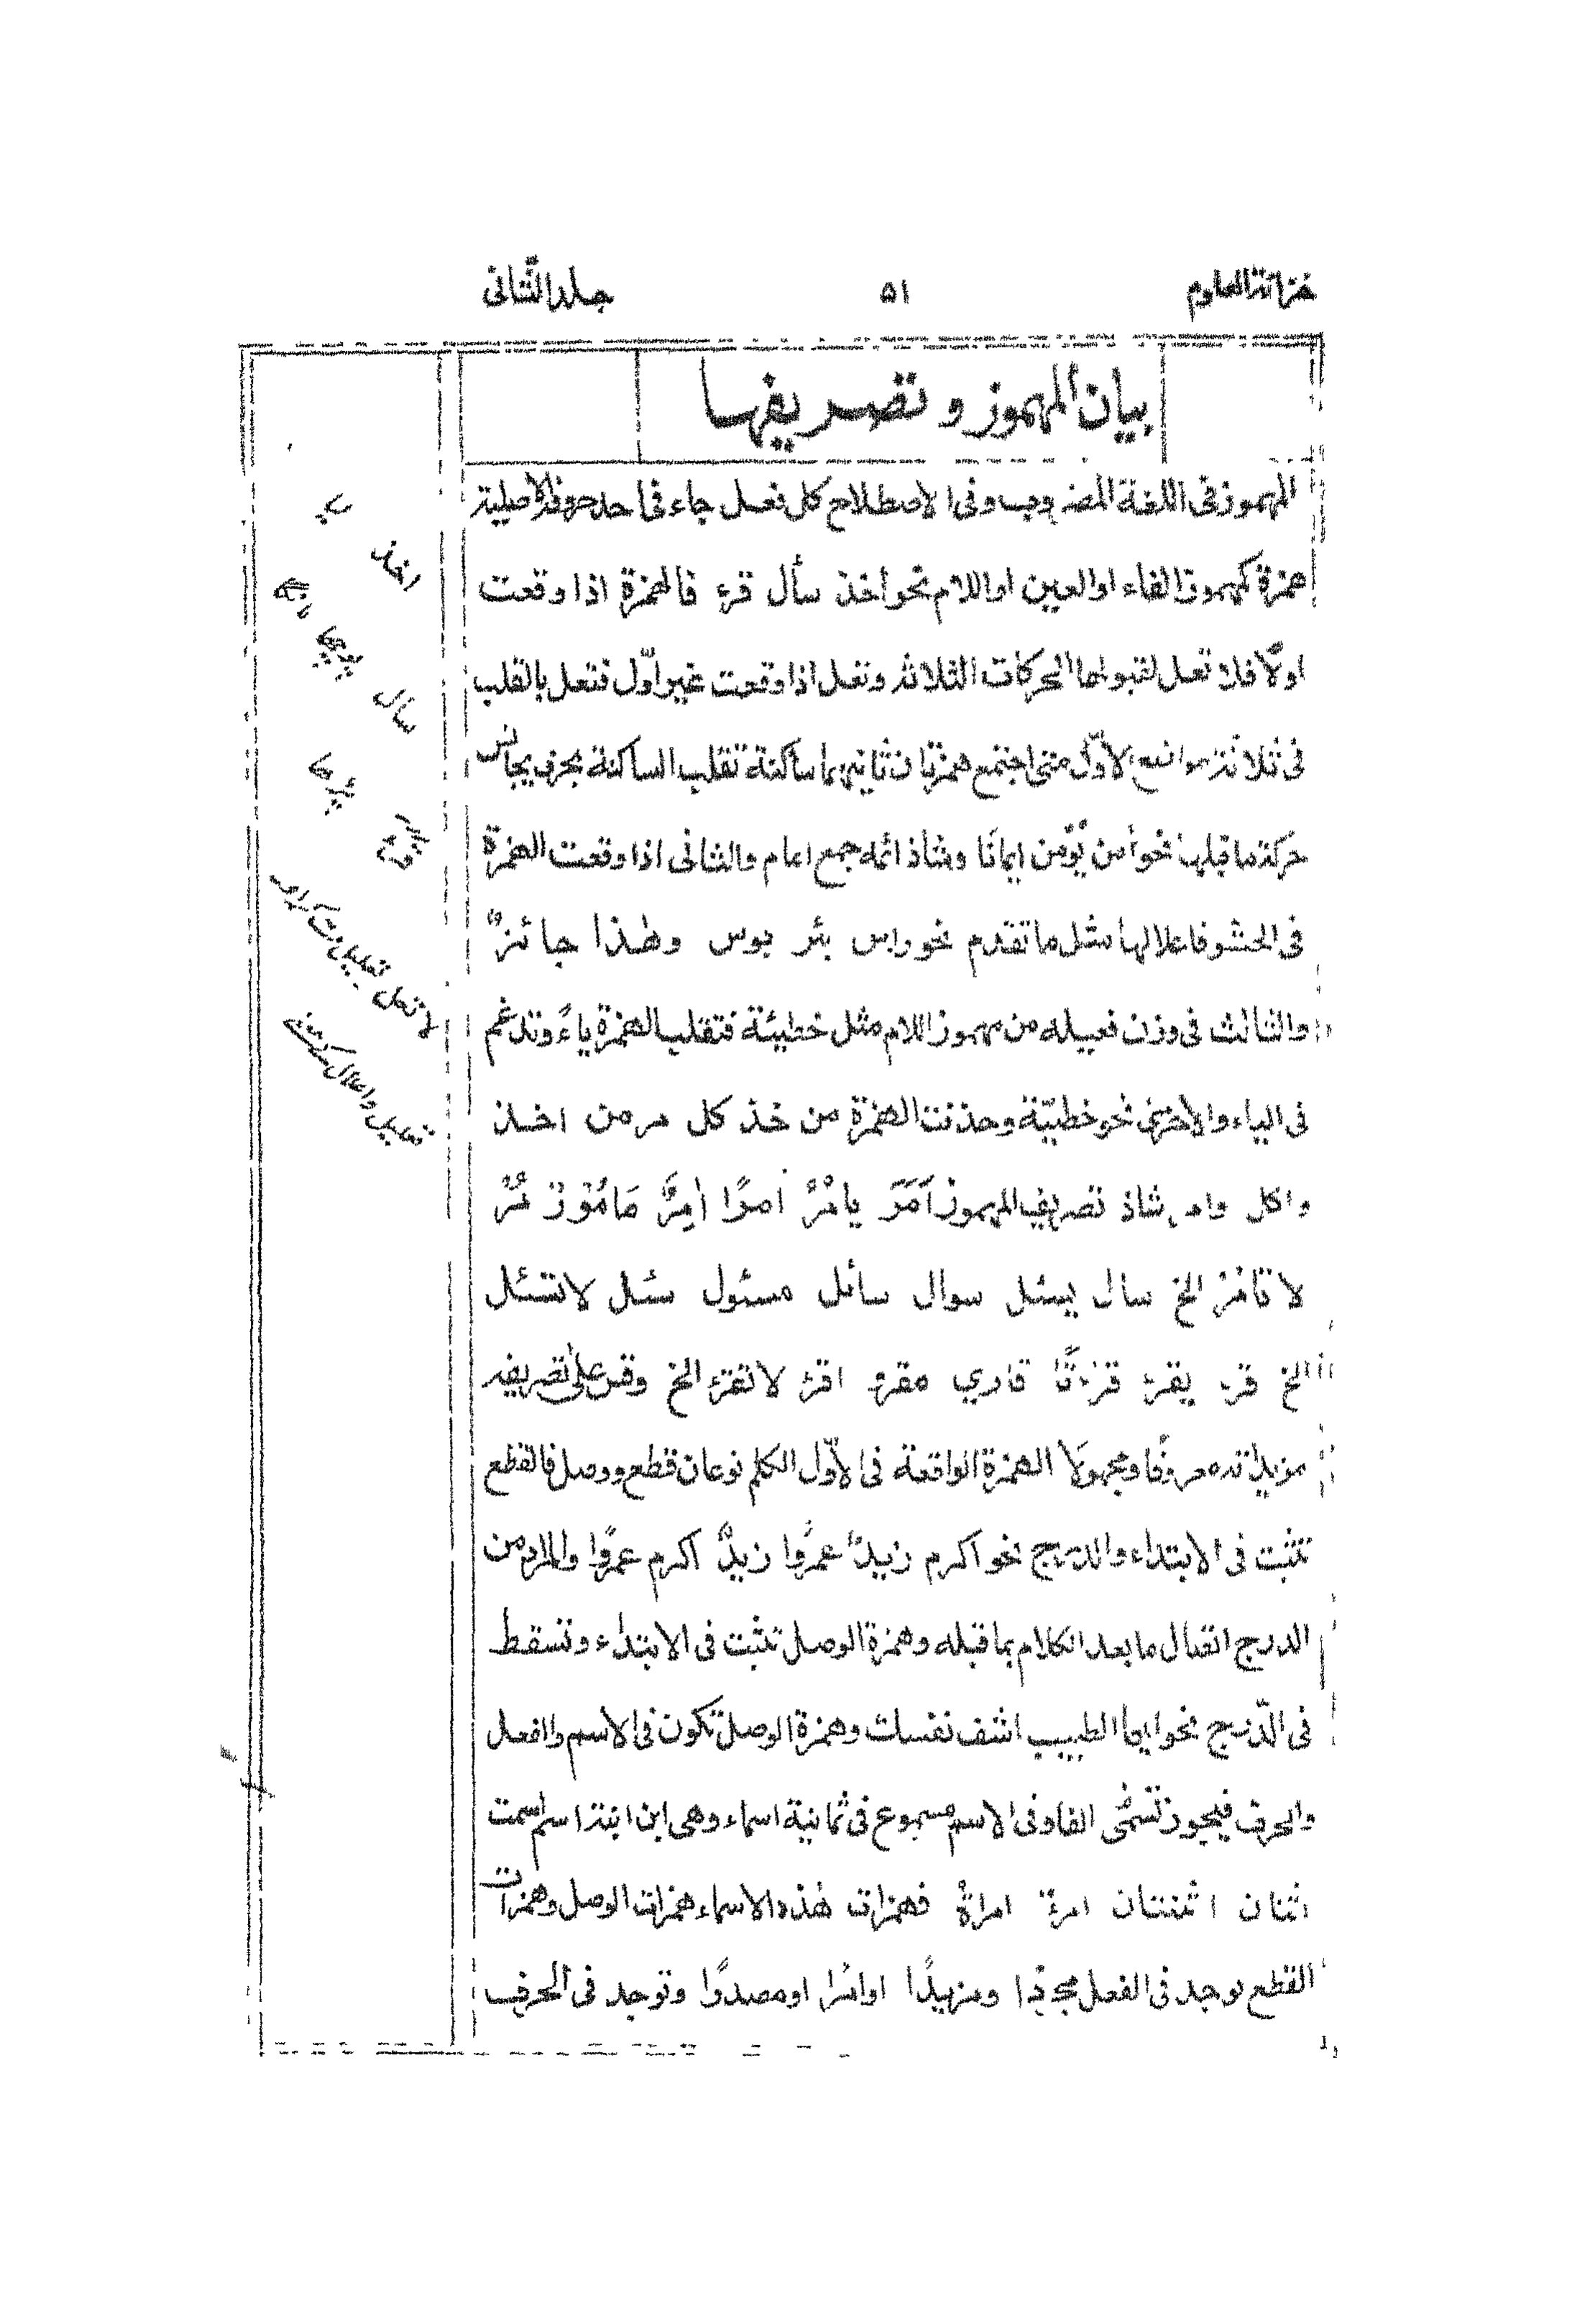 خزانة العلوم
۵۱
جلد الثّانی
بيان المهموز و تصريفها
المهموز فى اللغة المضروب وفى الاصطلاح كل فعل جاء فى احد حروفه الاصلية
همزة كمهموز الفاء او العين او اللام نحو أخذ سأل قرء فالهمزة اذا وقعت
اولًا فلا تعل لقبولها الحركات الثلاثة وتعل اذا وقعت غير اوّل فتعل بالقلب
فى ثلاثة مواضع الاوّل متى اجتمع همزتان ثانيهما ساكنة تقلب الساكنة بحرف يجانس
حركة ما قبلها نحو أمن يؤمن ايمانًا وشاذ ائمه جمع امام والثانى اذا وقعت الهمزة
فى الحشو فاعلالها مثل ما تقدم نحو راس بئر بوس وهٰذا جائزٌ
والثالث فى وزن فعيله من مهموز اللام مثل خطيئة فتقلب الهمزة ياءً وتدغم
فى الياء والاخرىٰ نحو خطيّة وحذفت الهمزة من خذ كل مر من اخذ
واكل وامر شاذ تصريف المهموز اَمَرَ يامُرُ امرًا اٰمِرٌ مَامُوْرٌ مُرْ
لا تامُرْ الخ سال يسئل سوال سائل مسئول سئل لا تسئل
الخ قرء يقرء قرءتًا قاري مقرو اقرء لا تقرء الخ وقس على تصريفه
مزيداته معروفًا ومجهولًا الهمزة الواقعة فى الاوّل الكلم نوعان قطع ووصل فالقطع
تثبت فى الابتداء والدرج نحو اكرم زيدٌ عمرًوا زيدٌ اكرم عمرًوا والمراد من
الدرج اتصال ما بعد الكلام بما قبله وهمزة الوصل تثبت فى الابتداء وتسقط
فى الدّرج نحو ايها الطبيب اشف نفسك وهمزة الوصل تكون فى الاسم والفعل
والحرف فيجوز تسمى الفا وفى الاسم مسموع فى ثمانية اسماء وهى ابن ابنة اسم است
اثنان اثنتان امرءٌ امراةٌ فهمزات هٰذه الاسماء همزات الوصل وهمزات
القطع توجد فى الفعل مجردًا ومزيدًا او امرًا او مصدرًا وتوجد فى الحرف
اخذ
سأل